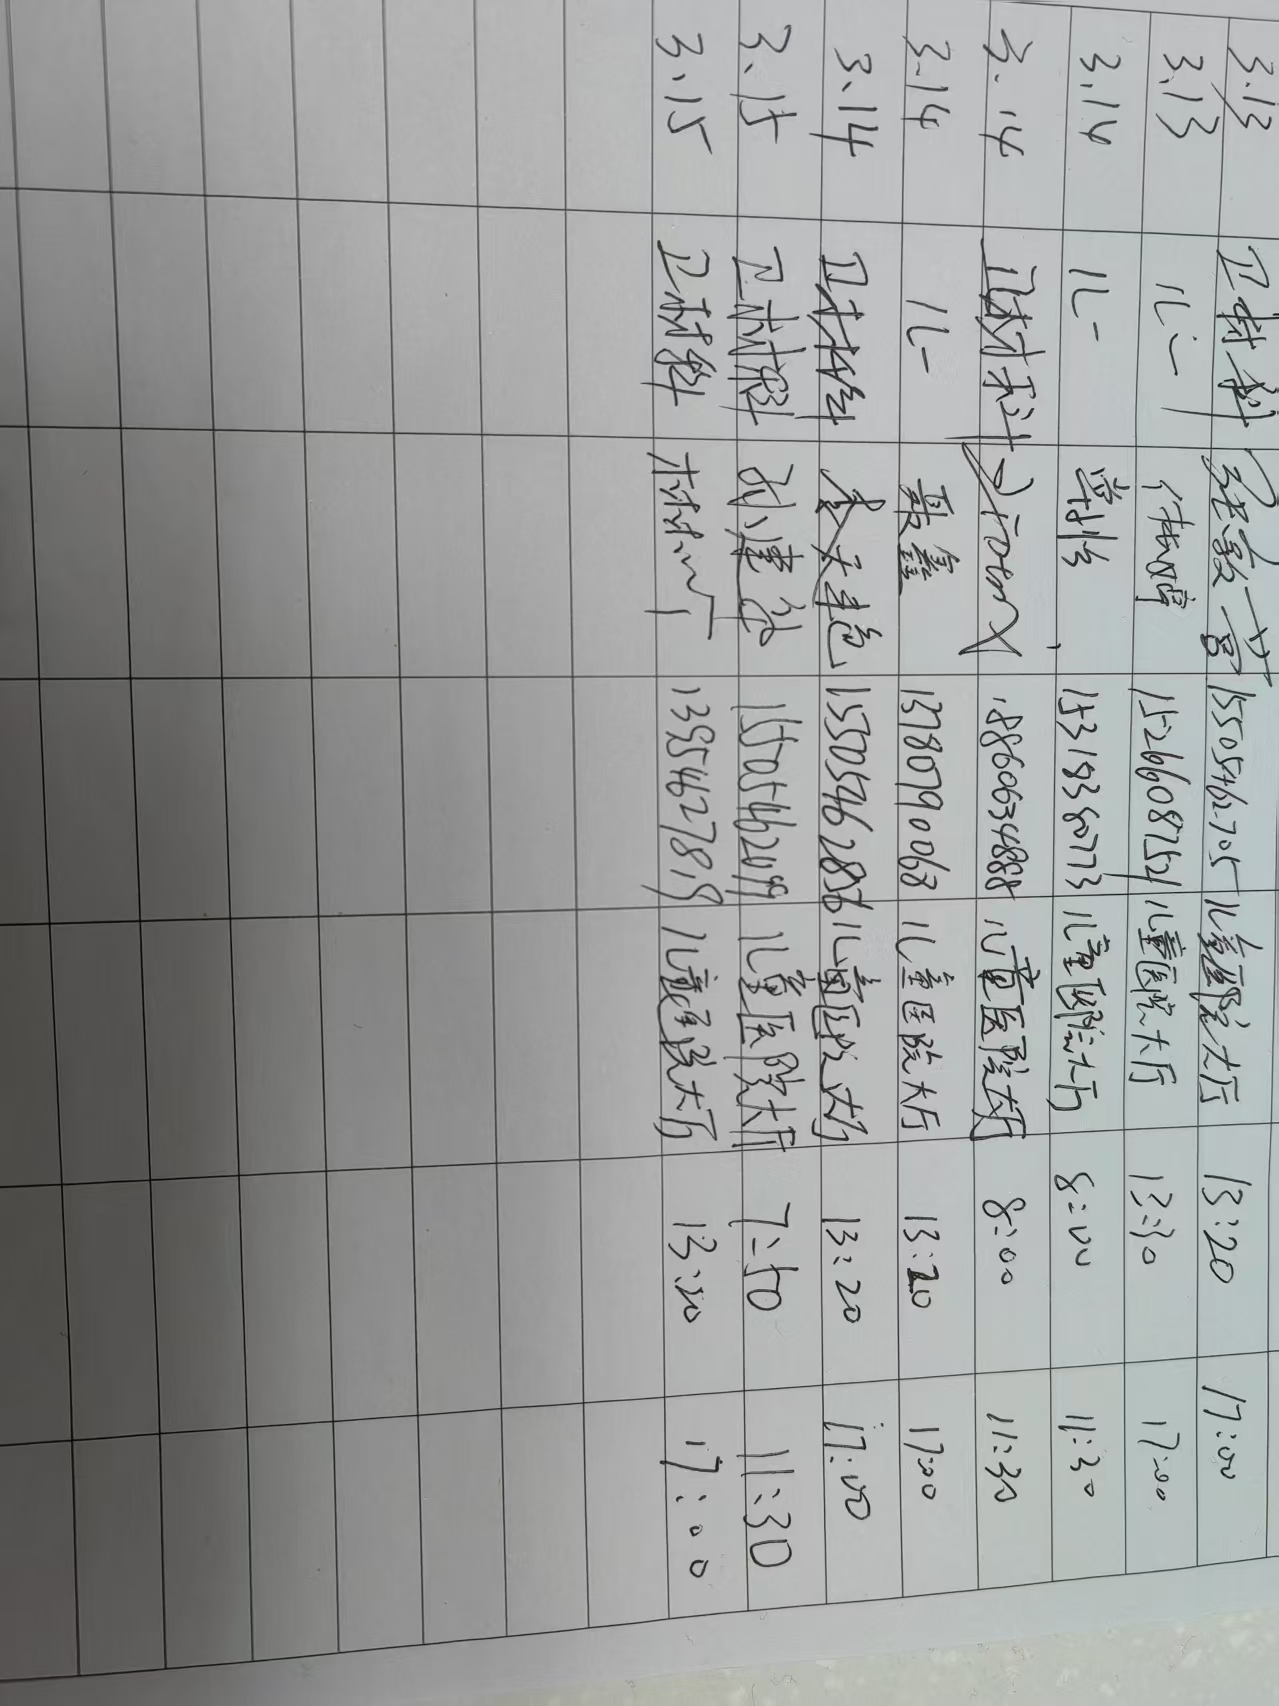 3.13 卫材科 15505462705 儿童医院大厅 13:20 17:00
3.13 儿一 15266087521 儿童医院大厅 13:30 17:00
3.14 儿一 15319380773 儿童医院大厅 8:00 11:30
3.14 卫材科 18860634888 儿童医院大厅 8:00 11:30
3.14 儿一 聂鑫 13780790063 儿童医院大厅 13:20 17:00
3.14 卫材科 15505462856 儿童医院大厅 13:20 17:00
3.15 卫材科 刘建 儿童医院大厅 7:50 11:30
3.15 卫材科 13954627819 儿童医院大厅 17:00